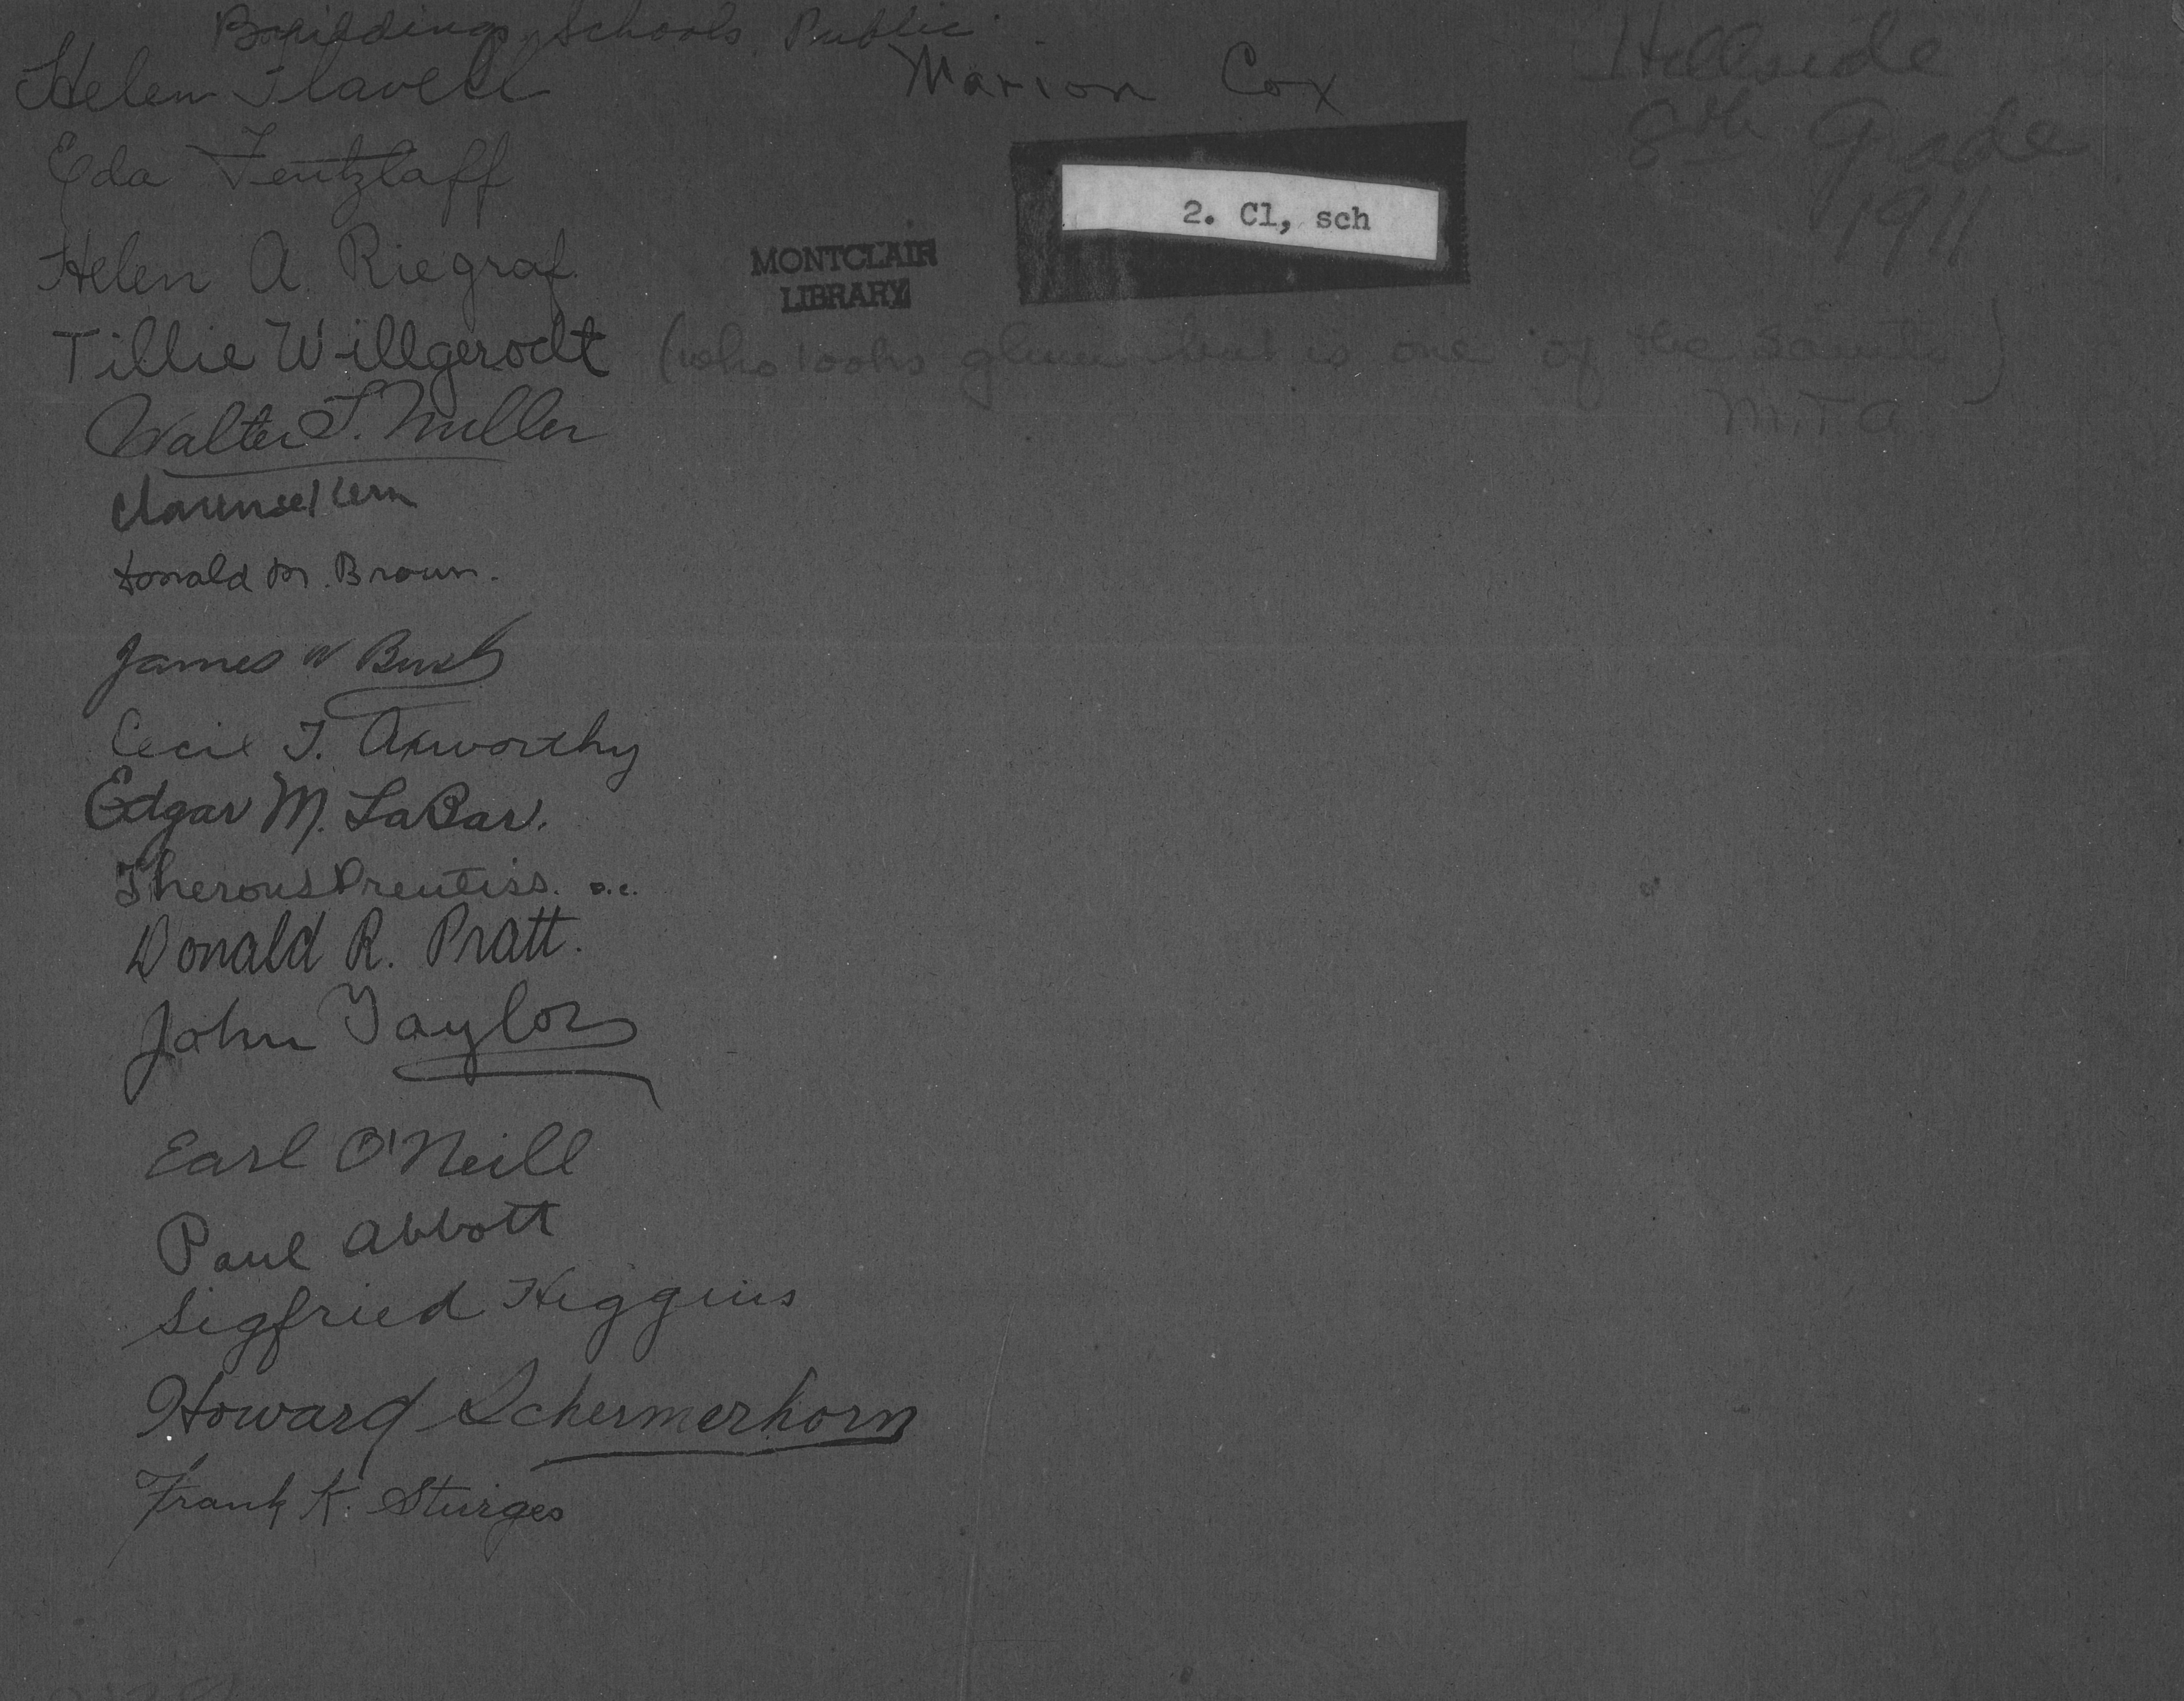 Buildings, Schools, Public
Helen Flavell
Marion Cox
Hillside
8th Grade
1911
Eda Tentzlaff
2. Cl, sch
Helen A. Riegraf
MONTCLAIR
LIBRARY
Tillie Willgerodt (who looks glum but is one of the saints)
M.T.A
Walter T. Miller
Donald M. Brown.
James W Bush
Cecil T. Axworthy
Edgar M. LaBar.
Prentiss.
Donald R. Pratt.
John Taylor
Earl O'Neill
Paul Abbott
Sigfried Higgins
Howard Schermerhorn
Frank K. Sturges